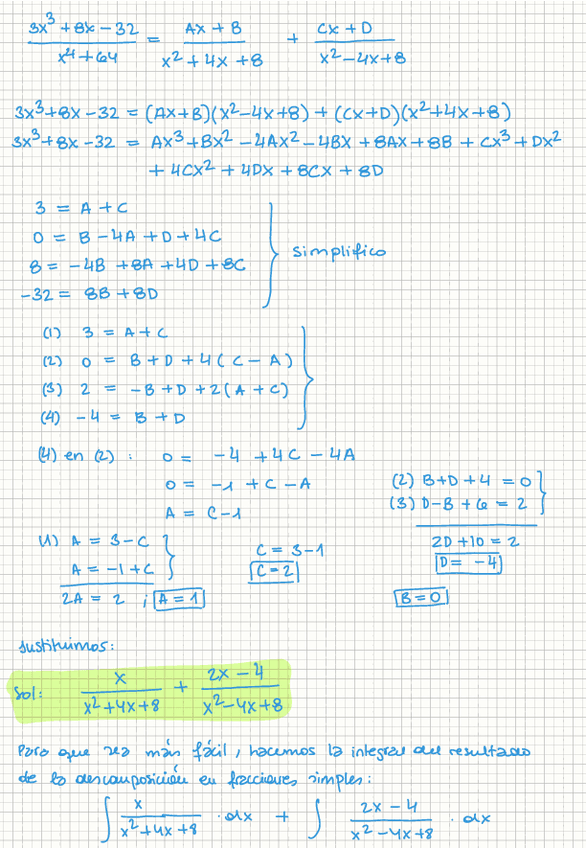 3x³ + 8x − 32 / x⁴ + 64 = Ax + B / x² + 4x + 8 + Cx + D / x² − 4x + 8
3x³ + 8x − 32 = (Ax + B)(x² − 4x + 8) + (Cx + D)(x² + 4x + 8)
3x³ + 8x − 32 = Ax³ + Bx² − 4Ax² − 4Bx + 8Ax + 8B + Cx³ + Dx²
+ 4Cx² + 4Dx + 8Cx + 8D
3 = A + C
0 = B − 4A + D + 4C
simplifico
8 = −4B + 8A + 4D + 8C
−32 = 8B + 8D
(1) 3 = A + C
(2) 0 = B + D + 4(C − A)
(3) 2 = −B + D + 2(A + C)
(4) −4 = B + D
(4) en (2): 0 = −4 + 4C − 4A
0 = −1 + C − A
A = C − 1
(2) B + D + 4 = 0
(3) D − B + 6 = 2
2D + 10 = 2
D = −4
B = 0
(1) A = 3 − C
A = −1 + C
2A = 2 ; A = 1
C = 3 − 1
C = 2
sustituimos:
Sol: x / x² + 4x + 8 + 2x − 4 / x² − 4x + 8
Para que sea más fácil, hacemos la integral del resultado
de la descomposición en fracciones simples:
∫ x / x² + 4x + 8 · dx + ∫ 2x − 4 / x² − 4x + 8 · dx